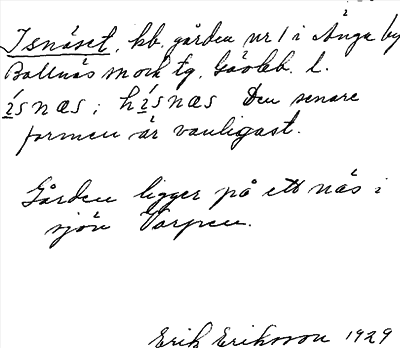 Isnäset, kb. gården nr 1 i Änga by
Bollnäs sock tg, Gävleb. l.
ísnæs; hísnæs Den senare
formen är vanligast.
Gården ligger på ett näs i
sjön Varpen.
Erik Eriksson 1929